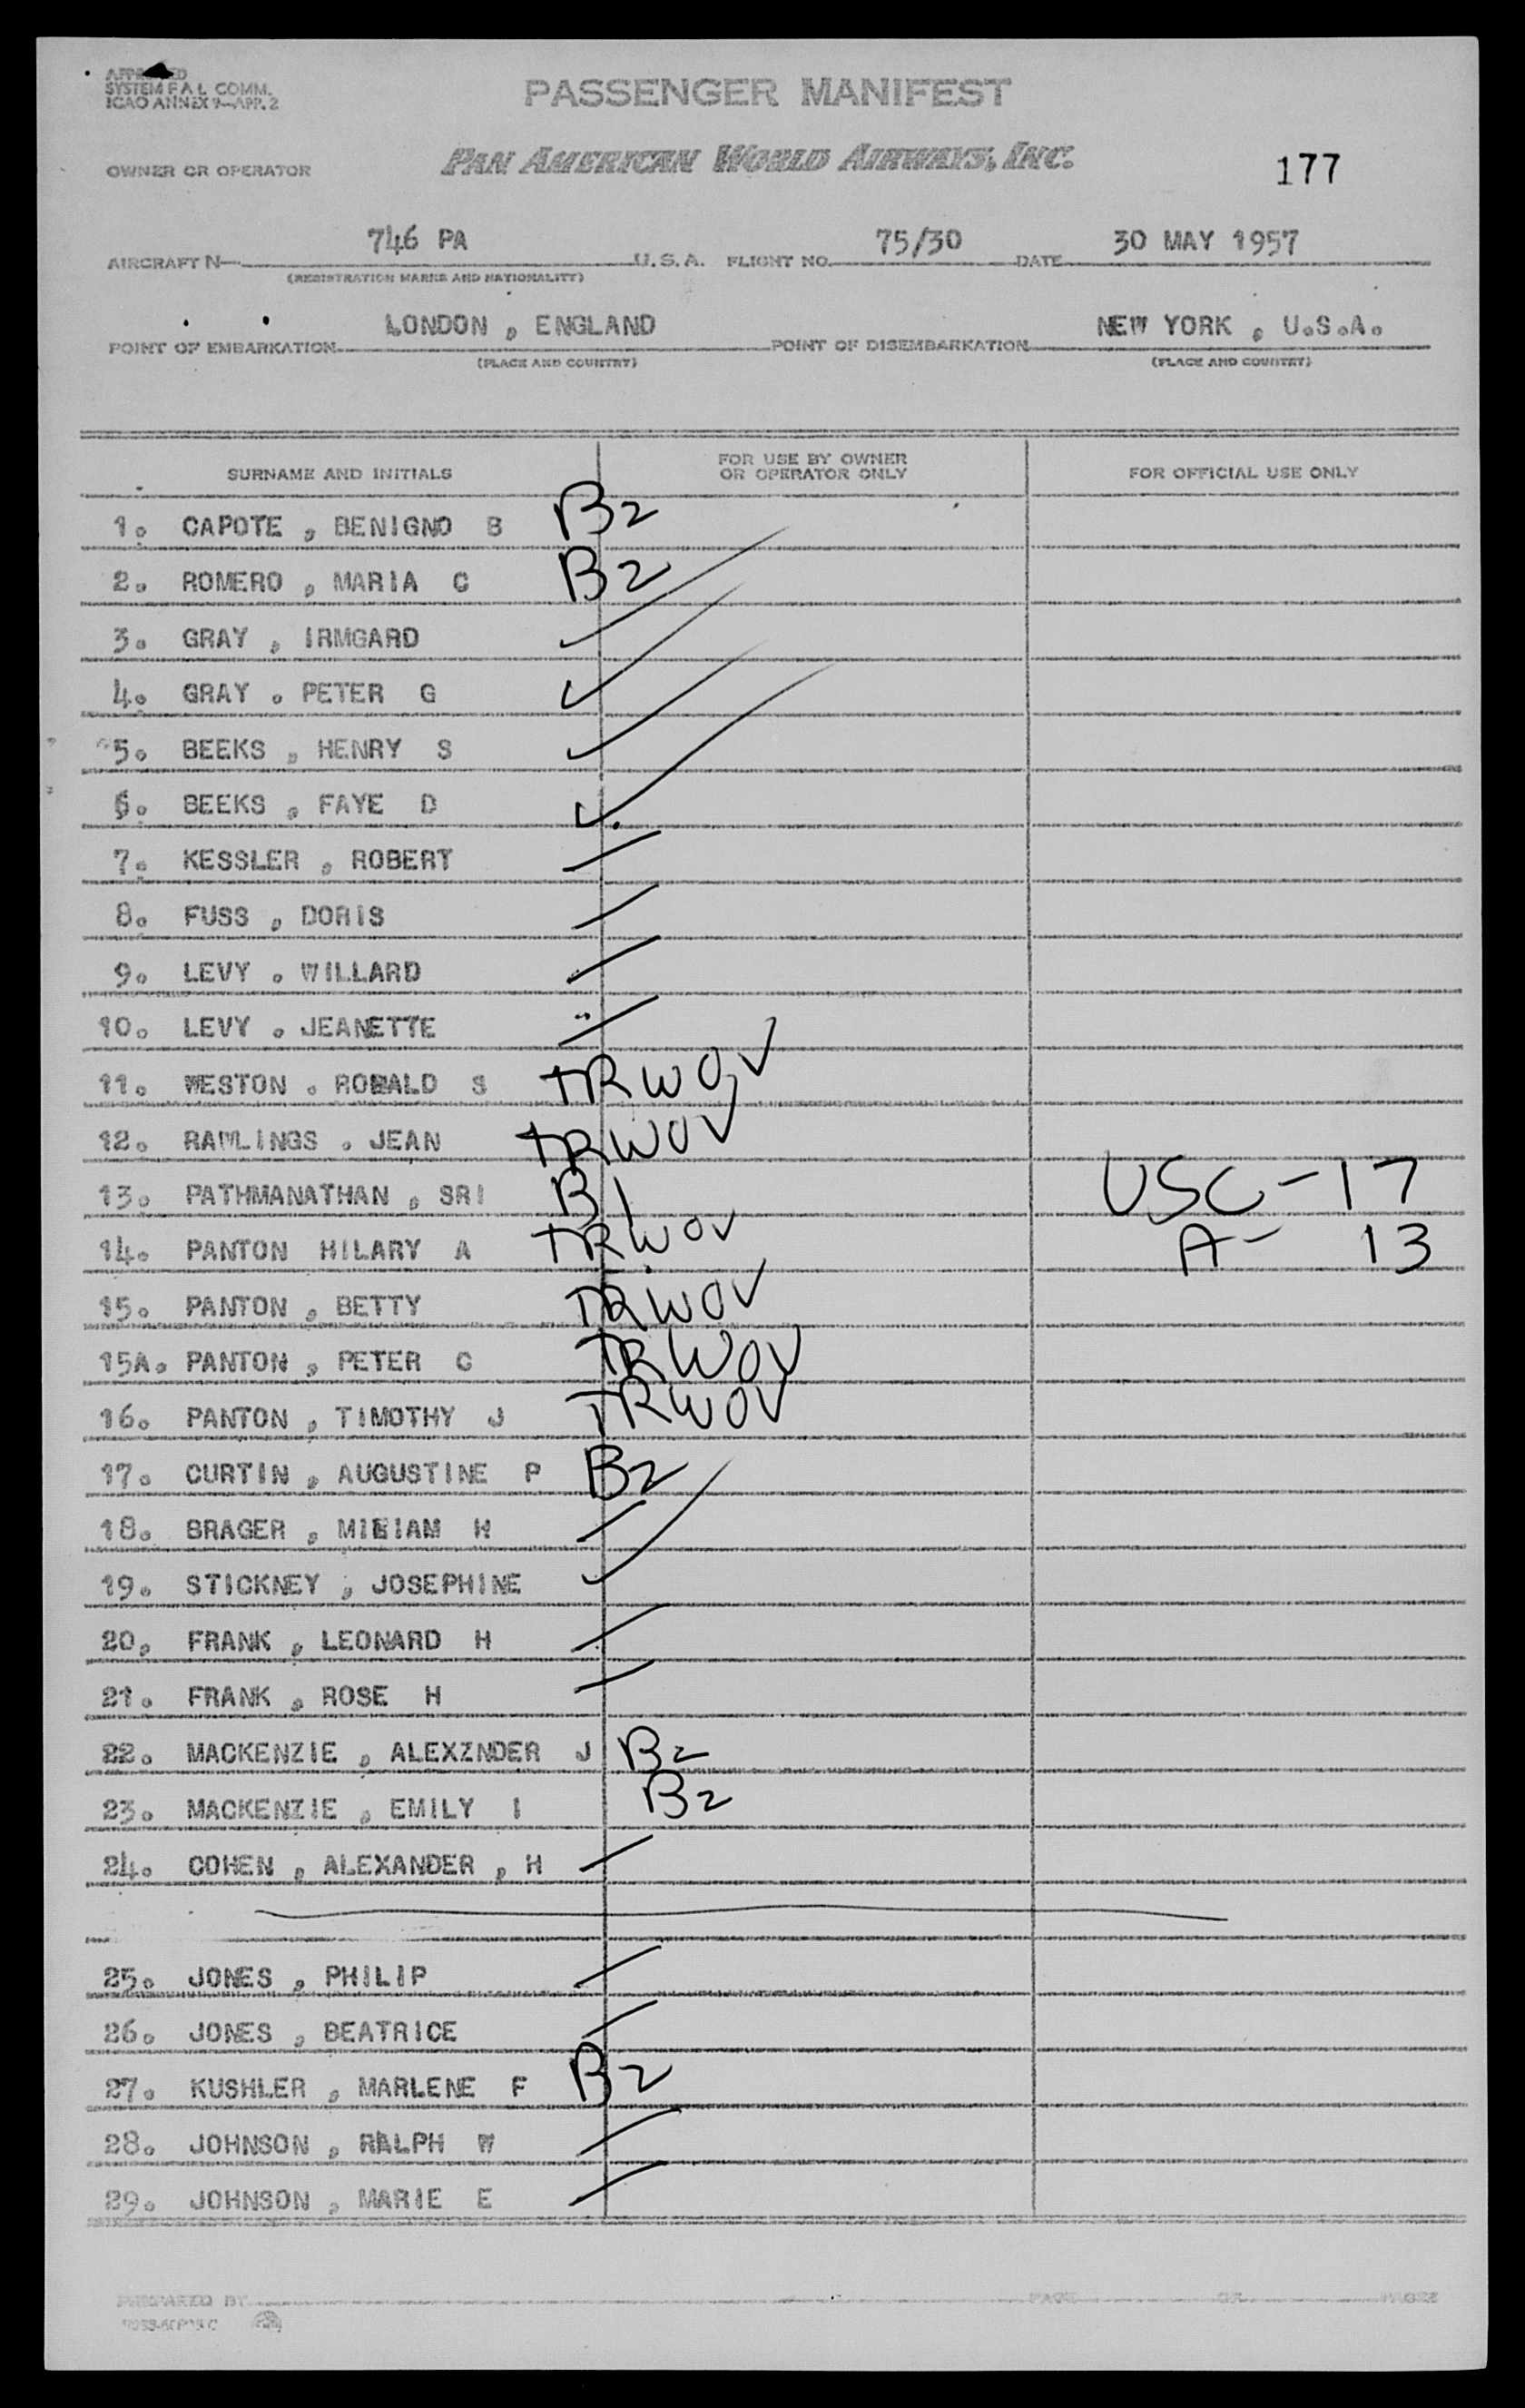 APPROVED
SYSTEM F A L COMM.
ICAO ANNEX 9—APP. 2
PASSENGER MANIFEST
OWNER OR OPERATOR PAN AMERICAN WORLD AIRWAYS, INC. 177
AIRCRAFT N— 746 PA U. S. A. FLIGHT NO. 75/30 DATE 30 MAY 1957
(REGISTRATION MARKS AND NATIONALITY)
POINT OF EMBARKATION LONDON , ENGLAND POINT OF DISEMBARKATION NEW YORK , U.S.A.
(PLACE AND COUNTRY) (PLACE AND COUNTRY)
SURNAME AND INITIALS FOR USE BY OWNER OR OPERATOR ONLY FOR OFFICIAL USE ONLY
1. CAPOTE , BENIGNO B B2
2. ROMERO , MARIA C B2
3. GRAY , IRMGARD ✓
4. GRAY . PETER G ✓
5. BEEKS , HENRY S ✓
6. BEEKS , FAYE D ✓
7. KESSLER , ROBERT
8. FUSS , DORIS
9. LEVY . WILLARD
10. LEVY . JEANETTE
11. WESTON . RONALD S TRWOV
12. RAWLINGS . JEAN TRWOV
13. PATHMANATHAN , SRI B1 USC-17
14. PANTON HILARY A TRWOV A- 13
15. PANTON , BETTY TRWOV
15A. PANTON , PETER C TRWOV
16. PANTON , TIMOTHY J TRWOV
17. CURTIN , AUGUSTINE P B2
18. BRAGER , MIRIAM H
19. STICKNEY , JOSEPHINE ✓
20. FRANK , LEONARD H
21. FRANK , ROSE H
22. MACKENZIE , ALEXZNDER J B2
23. MACKENZIE , EMILY I B2
24. COHEN , ALEXANDER , H
25. JONES , PHILIP
26. JONES , BEATRICE
27. KUSHLER , MARLENE F B2
28. JOHNSON , RALPH W
29. JOHNSON , MARIE E
PREPARED BY PAGE OF PAGES